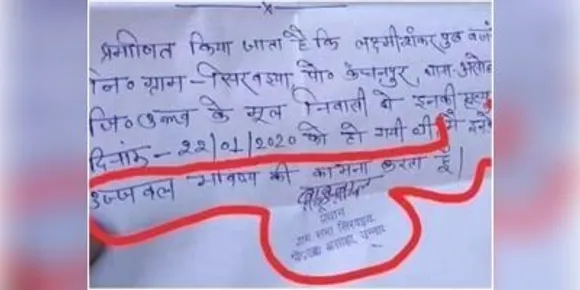 x
प्रमाणित किया जाता है कि लक्ष्मीशंकर पुत्र
नि० ग्राम - सिरवइया, पो० कंचनपुर, थाना-असोहा
जि० उन्नाव के मूल निवासी थे इनकी मृत्यु
दिनांक - 22/01/2020 को हो गयी थी मैं इनके
उज्जवल भविष्य की कामना करता हूँ।
प्रधान
ग्राम सभा सिरवइया
असोहा, उन्नाव